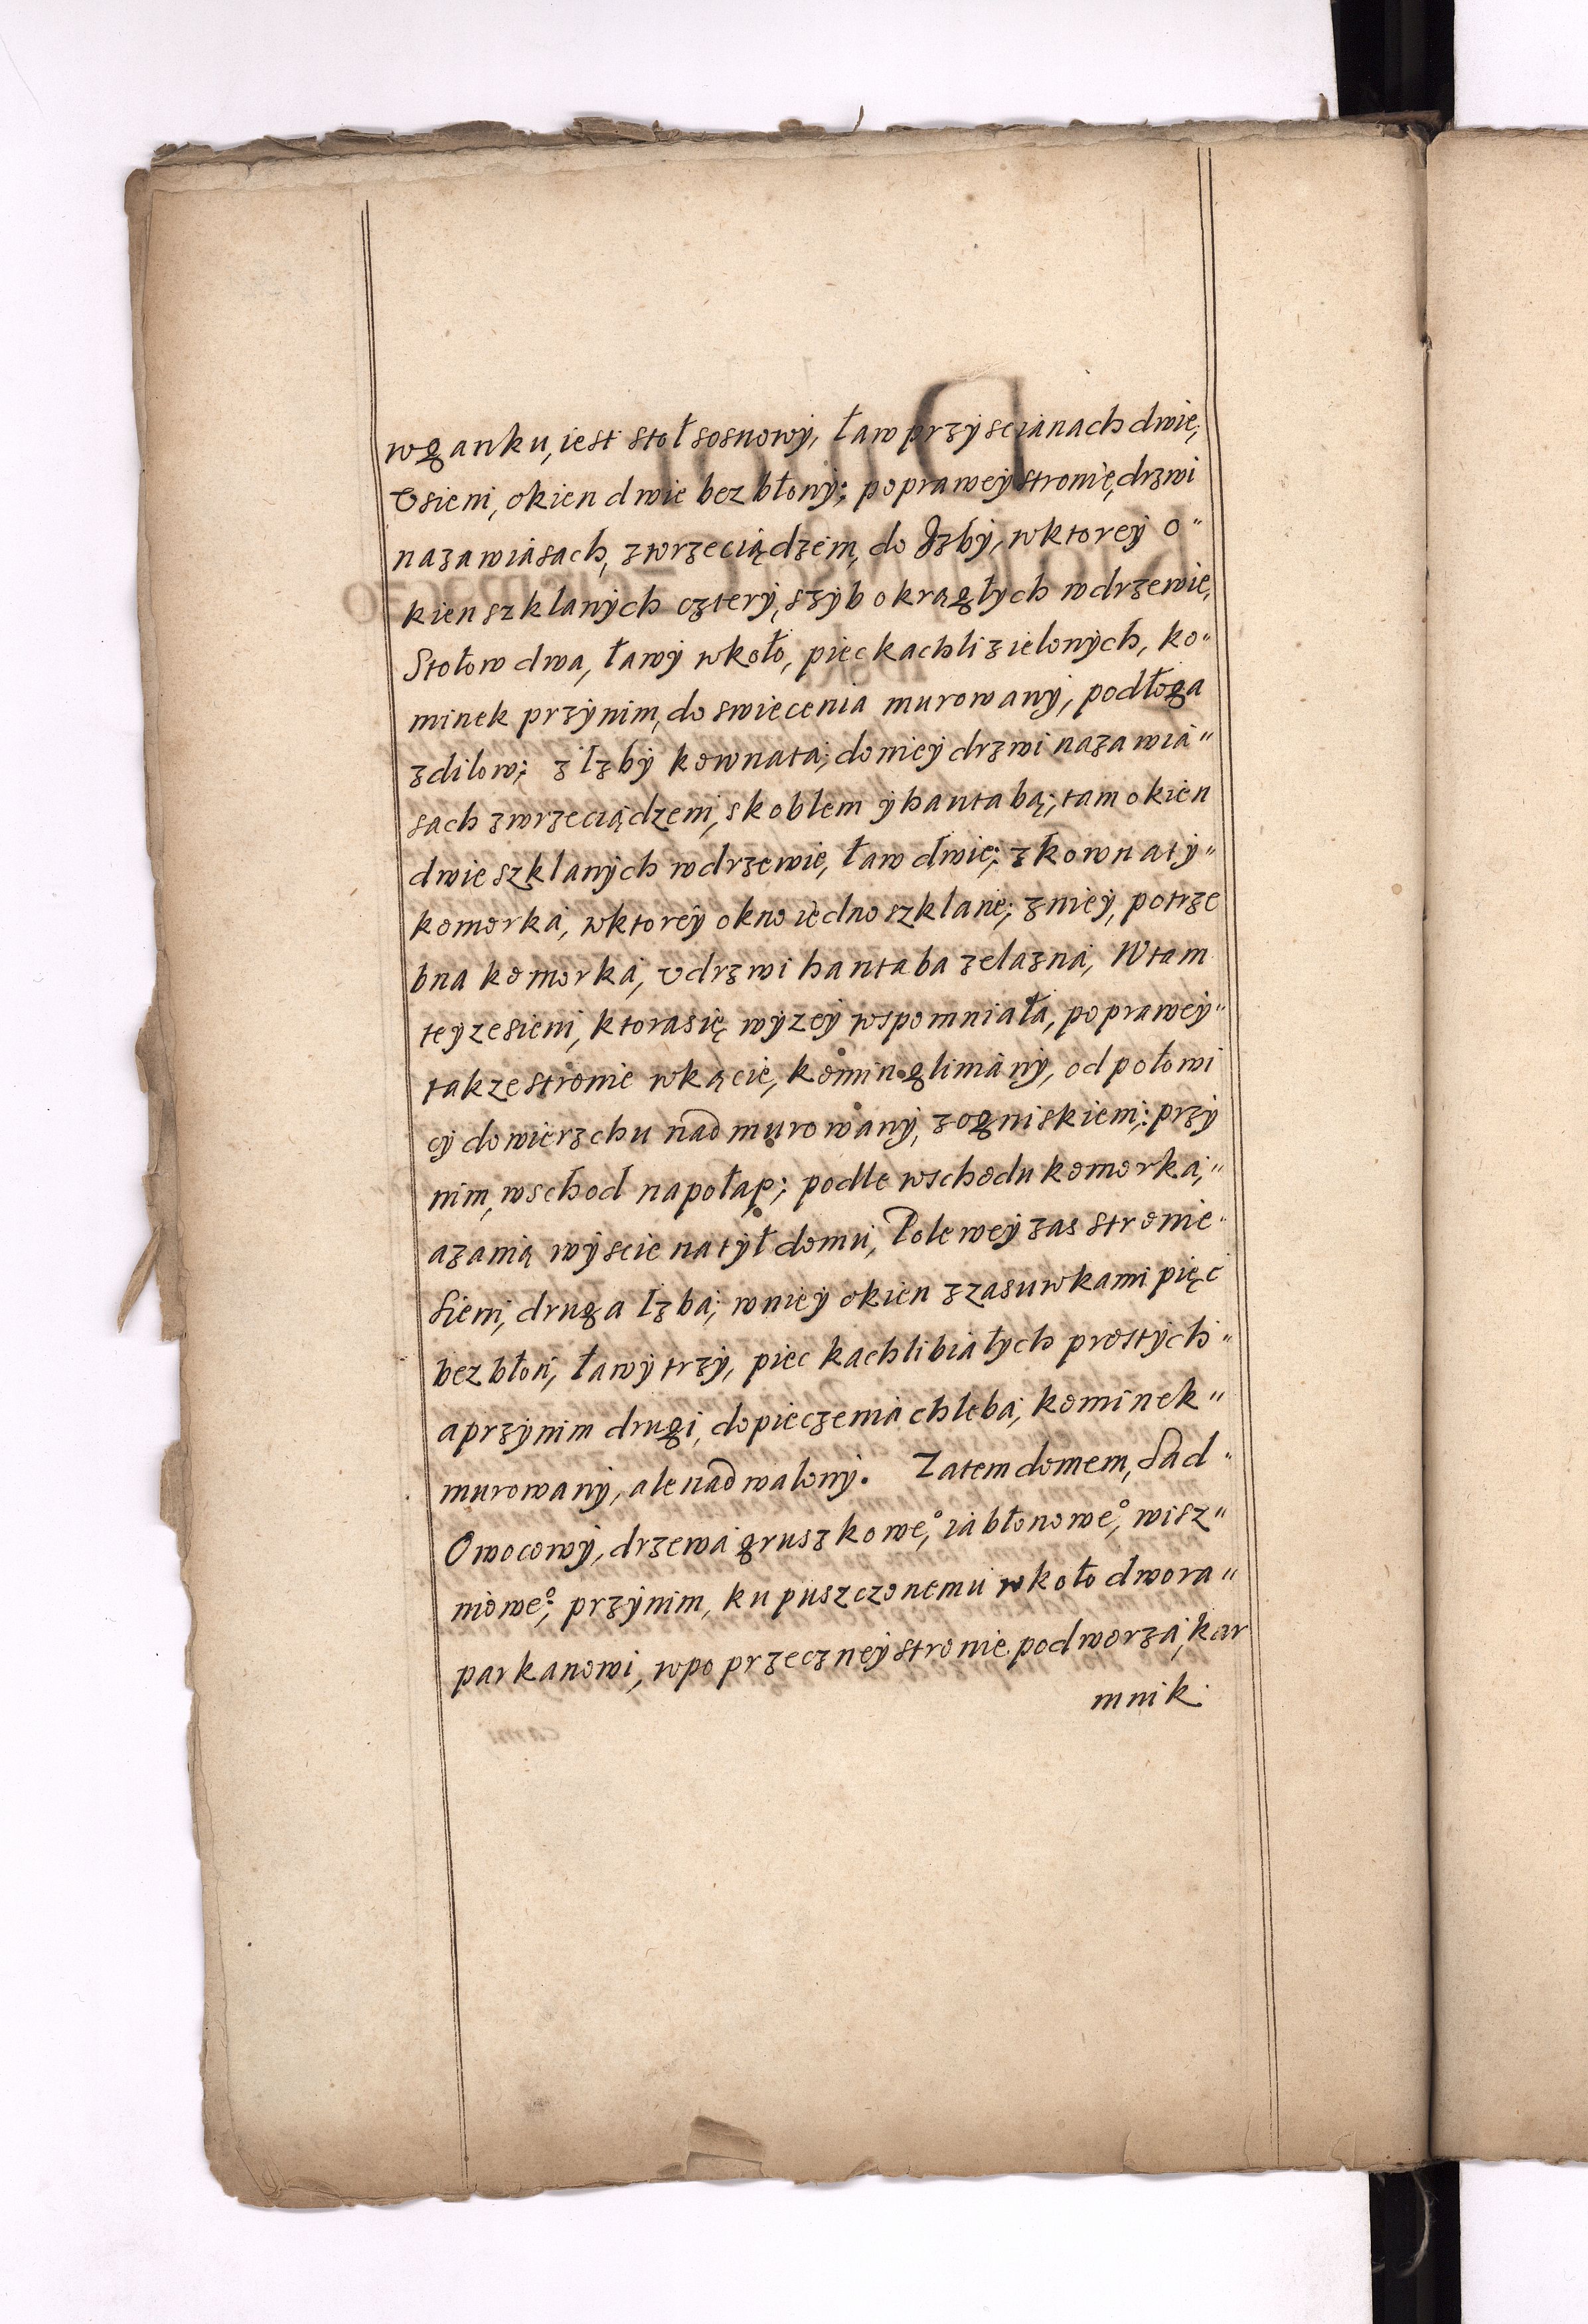 wganku, iest stoł sosnowy, ław przy scianach dwie,
Vsieni, okien dwie bez błony; poprawey stronie, drzwi
nazawiasach, zwrzeciądzem, do Jzby, wktorey o"
kien szklanych cztery, szyb okrągłych wdrzewie,
Stołow dwa, ławy wkoło, piec kachli zielonych, ko"
minek przynim, do swiecenia murowany, podłoga
zdilow; z Izby kownata; doniey drzwi nazawia"
sach zwrzeciądzem, skoblem y hantabą; tam okien
dwie szklanych wdrzewie, ław dwie; zkownaty"
komorka, wktorey okno iedno szklane; zniey, potrze
bna komorka, vdrzwi hantaba zelazna, Wtam
teyze sieni, ktora się wyzey wspomniała, poprawey"
takze stronie wkącie, komin gliniany, od połowi
cy dowierzchu nadmurowany, zogniskiem; przy
nim, wschod napołap; podle wschodu komorka,"
azanią wyscie natył domu, Polewey zas stronie"
Sieni, druga Izba; wniey okien zzasuwkami pięc
bez błon, ławy trzy, piec kachli białych prostych"
aprzynim drugi, dopieczenia chleba, kominek"
murowany, ale nadwalony. Zatem domem, Sad"
Owocowy, drzewa gruszkoweº, iabłonoweº, wisz"
nioweº; przynim, ku puszczonemu wkoło dwora"
parkanowi, wpoprzeczney stronie podworza, kar
mnik.